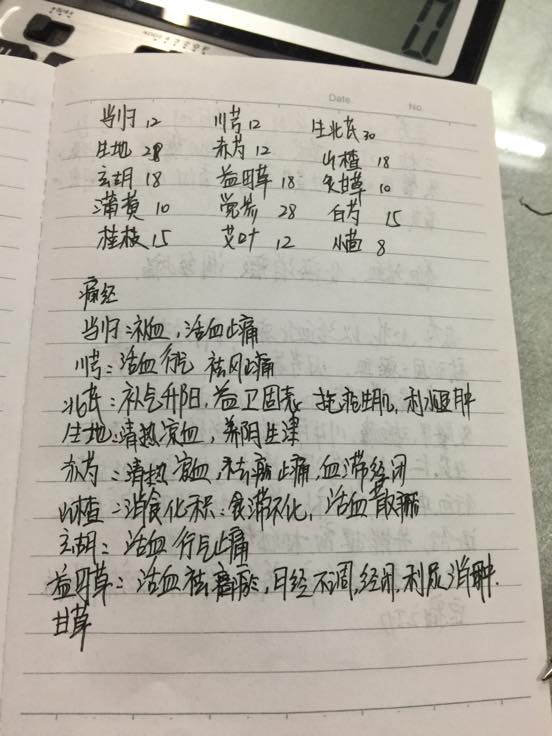 Date. No.
当归 12 川芎 12 生北芪 30
生地 28 赤芍 12 山楂 18
玄胡 18 益母草 18 炙甘草 10
蒲黄 10 党参 28 白芍 15
桂枝 15 艾叶 12 小茴 8
痛经
当归:补血,活血止痛
川芎:活血行气 祛风止痛
北芪:补气升阳,益卫固表 托疮生肌,利水退肿
生地:清热凉血,养阴生津
赤芍:清热凉血,祛瘀止痛,血滞经闭
山楂:消食化积:食滞不化,活血散瘀
玄胡:活血行气止痛
益母草:活血祛瘀,月经不调,经闭,利尿消肿.
甘草